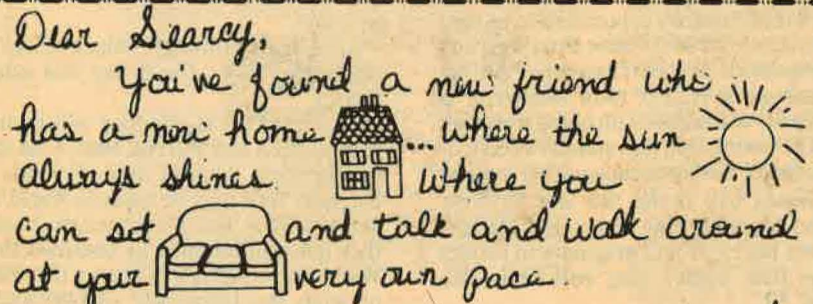 Dear Searcy,
You've found a new friend who
has a new home ... where the sun
always shines. Where you
can sit and talk and walk around
at your very own pace.